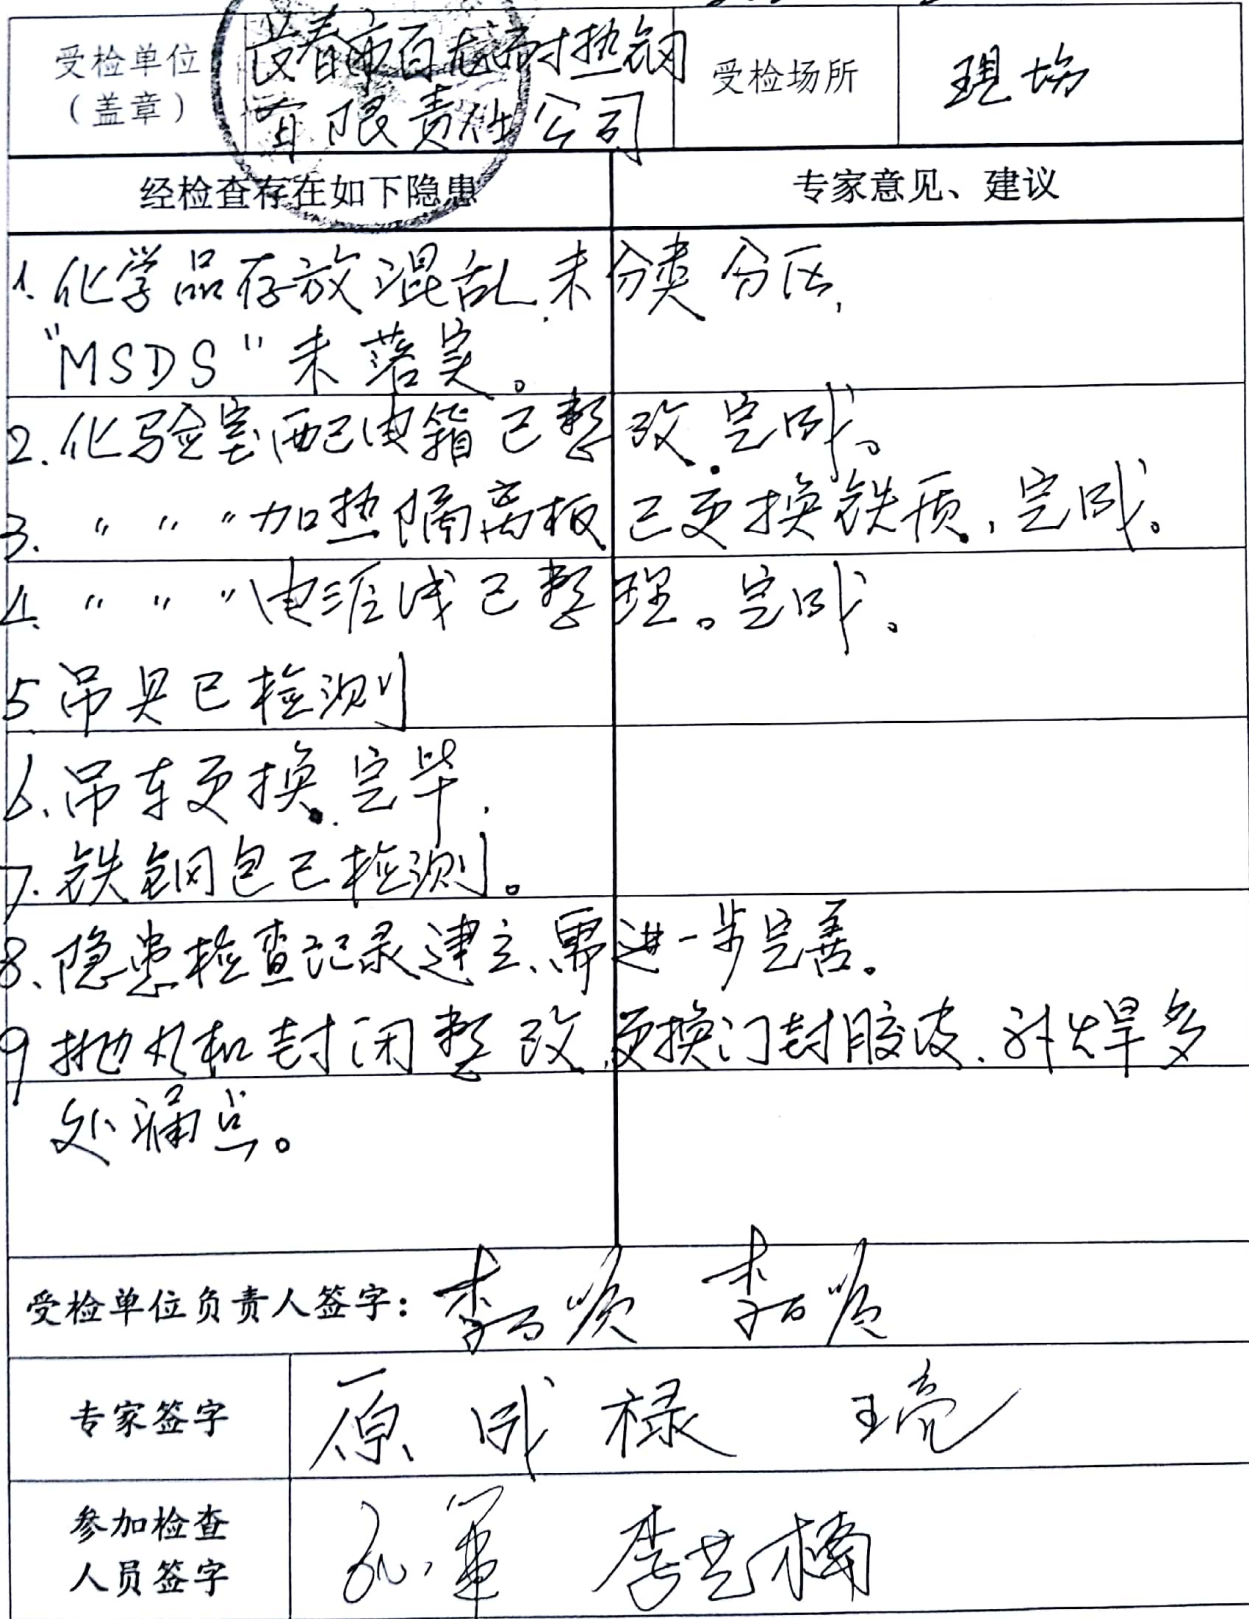 受检单位
（盖章）
长春市百龙耐热钢
有限责任公司
受检场所
现场
经检查存在如下隐患
专家意见、建议
1.化学品存放混乱,未分类分区,
"MSDS"未落实。
2.化验室配电箱已整改.完成。
3. 〃 〃 〃加热隔离板已更换铁质,完成。
4. 〃 〃 〃电缆线已整理。完成。
5吊具已检测
6、吊车更换.完毕.
7.铁钢包已检测。
8、隐患检查记录建立、需进一步完善。
9抛丸机封闭整改,更换门封胶皮.补焊多
处漏点。
受检单位负责人签字：
专家签字
原成禄 王亮
参加检查
人员签字
孔军 李艺楠